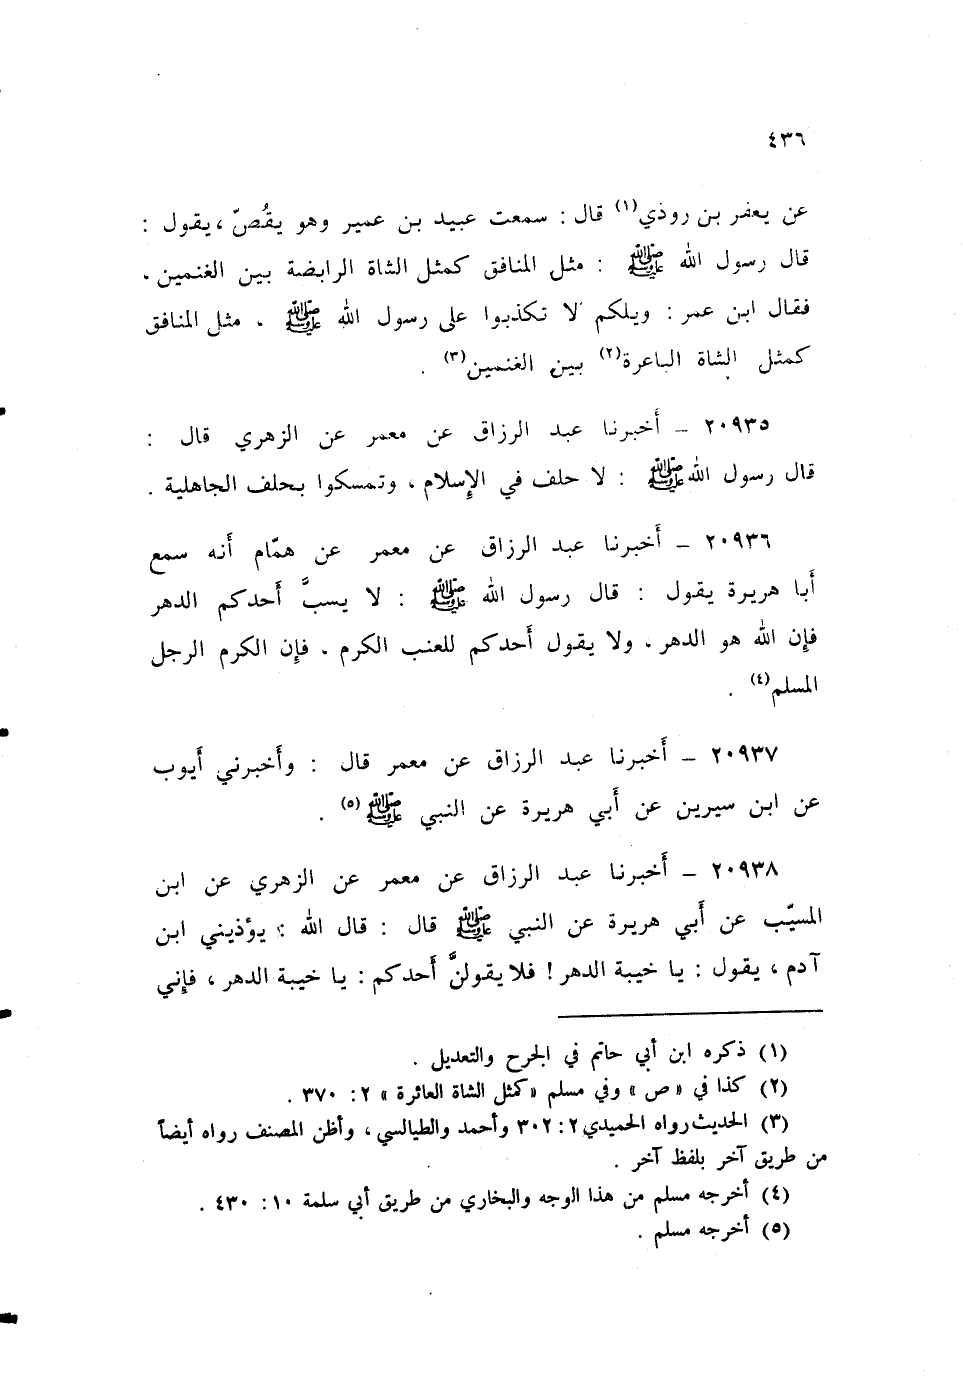 ٤٣٦
عن يعفر بن روذي(١) قال : سمعت عبيد بن عمير وهو يقُصّ ، يقول :
قال رسول الله ﷺ : مثل المنافق كمثل الشاة الرابضة بين الغنمين .
فقال ابن عمر : ويلكم لا تكذبوا على رسول الله ﷺ . مثل المنافق
كمثل الشاة الباعرة(٢) بين الغنمين(٣) .
٢٠٩٣٥ – أخبرنا عبد الرزاق عن معمر عن الزهري قال :
قال رسول الله ﷺ : لا حلف في الإسلام ، وتمسكوا بحلف الجاهلية .
٢٠٩٣٦ – أخبرنا عبد الرزاق عن معمر عن همّام أنه سمع
أبا هريرة يقول : قال رسول الله ﷺ : لا يسبَّ أحدكم الدهر
فإن الله هو الدهر . ولا يقول أحدكم للعنب الكرم . فإن الكرم الرجل
المسلم(٤) .
٢٠٩٣٧ – أخبرنا عبد الرزاق عن معمر قال : وأخبرني أيوب
عن ابن سيرين عن أبي هريرة عن النبي ﷺ(٥) .
٢٠٩٣٨ – أخبرنا عبد الرزاق عن معمر عن الزهري عن ابن
المسيّب عن أبي هريرة عن النبي ﷺ قال : قال الله : يؤذيني ابن
آدم ، يقول : يا خيبة الدهر ! فلا يقولنَّ أحدكم : يا خيبة الدهر ، فإني
(١) ذكره ابن أبي حاتم في الجرح والتعديل .
(٢) كذا في « ص » وفي مسلم « كمثل الشاة العائرة » ٢ : ٣٧٠ .
(٣) الحديث رواه الحميدي ٢ : ٣٠٢ وأحمد والطيالسي ، وأظن المصنف رواه أيضاً
من طريق آخر بلفظ آخر .
(٤) أخرجه مسلم من هذا الوجه والبخاري من طريق أبي سلمة ١٠ : ٤٣٠ .
(٥) أخرجه مسلم .